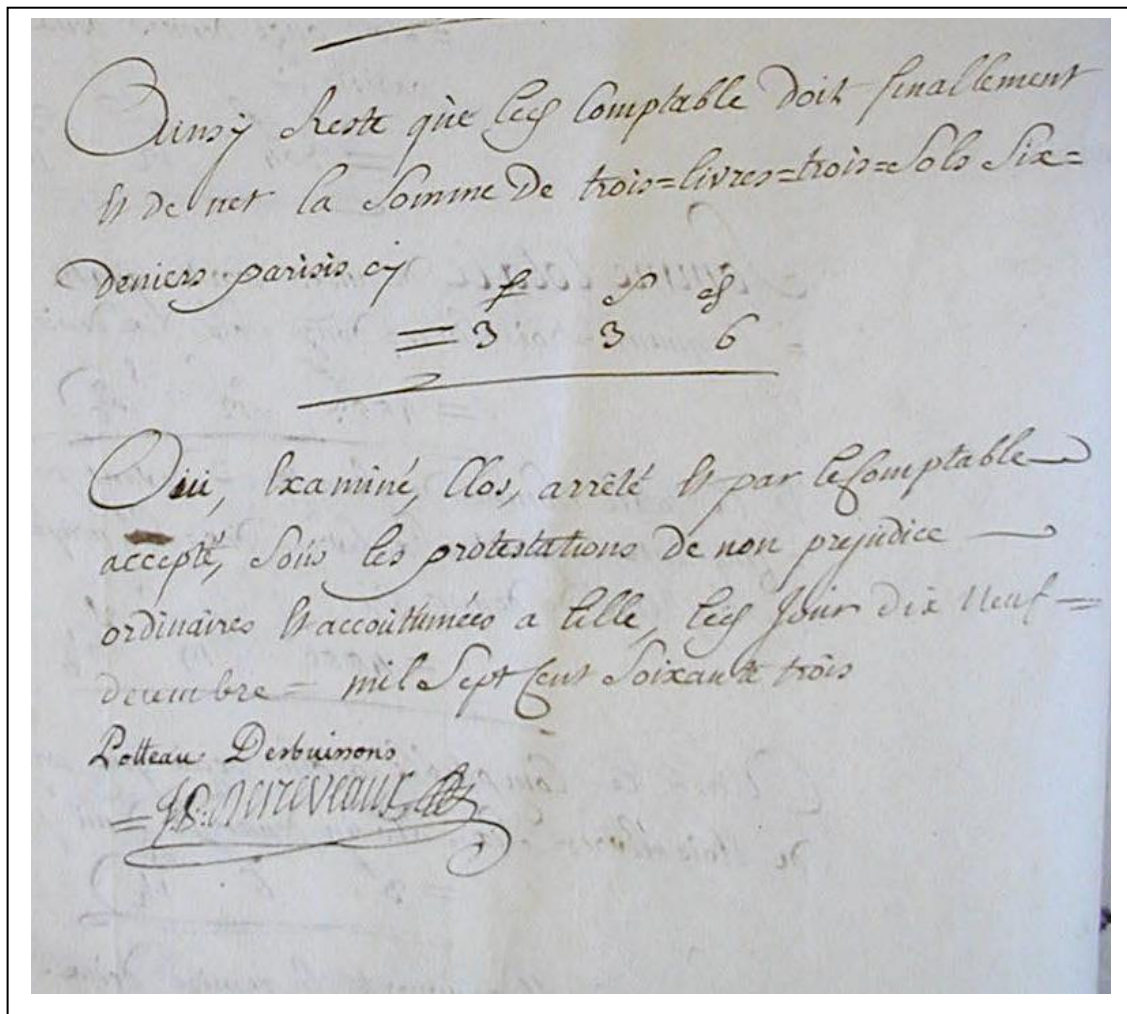 Ainsÿ Reste què led Comptable doit finallement
Et de net la Somme De trois=livres=trois=Sols Six=
deniers parisis cy
£ s d
= 3 3 6
Oui, Examiné, Clos, arrêté Et par le Comptable
accepté, Sous les protestations de non prejudice
ordinaires Et accoutumées a Lille, led Jour dix Neuf=
decembre = mil Sept Cent Soixante trois
Potteau Desbuissons